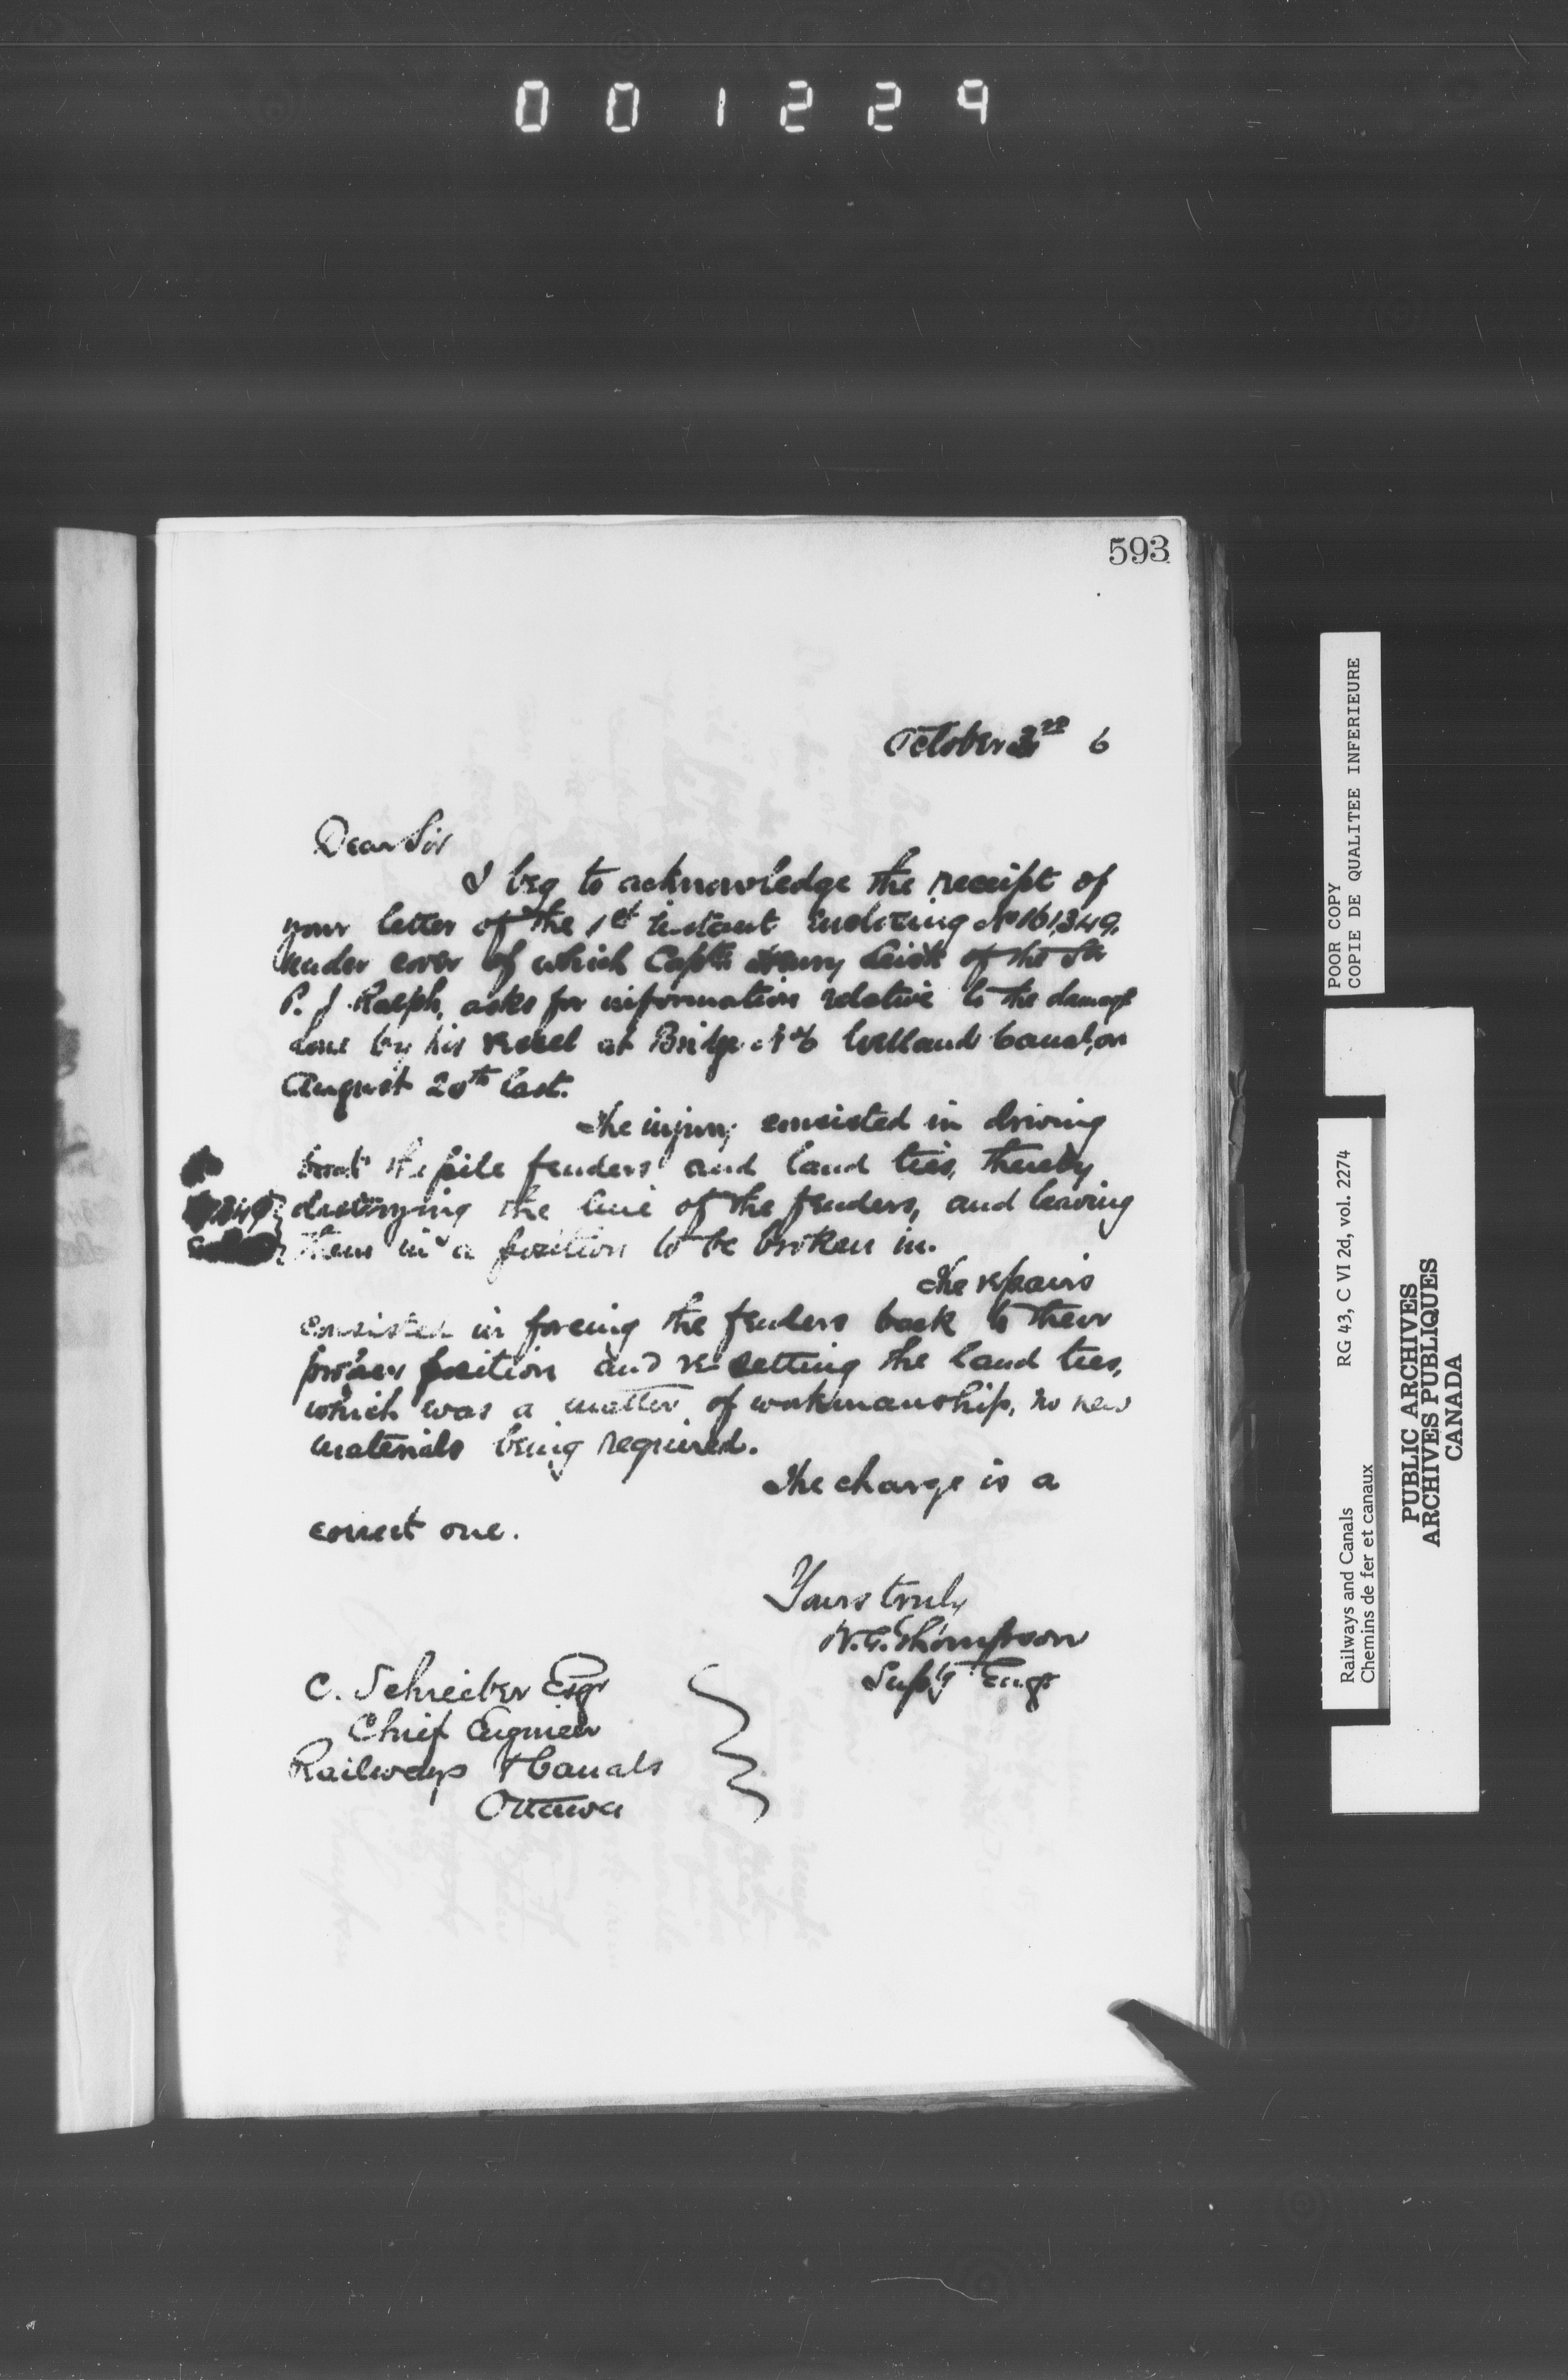 001229
593
October 3rd 6
Dear Sir
I beg to acknowledge the receipt of
your letter of the 1st instant enclosing No 161,349,
under cover of which Captn Henry Leisk of the Str
P. J. Ralph, asks for information relative to the damage
done by his vessel at Bridge No 6 Welland Canal, on
August 20th last.
The injury consisted in driving
back the pile fenders and land ties, thereby
destroying the line of the fenders, and leaving
them in a position to be broken in.
The repairs
consisted in forcing the fenders back to their
proper position and resetting the land ties,
which was a matter of workmanship, no new
materials being required.
The charge is a
correct one.
Yours truly
W.G. Thompson
Suptg Engr
C. Schreiber Esqr
Chief Engineer
Railways & Canals
Ottawa
POOR COPY
COPIE DE QUALITEE INFERIEURE
Railways and Canals RG 43, C VI 2d, vol. 2274
Chemins de fer et canaux
PUBLIC ARCHIVES
ARCHIVES PUBLIQUES
CANADA